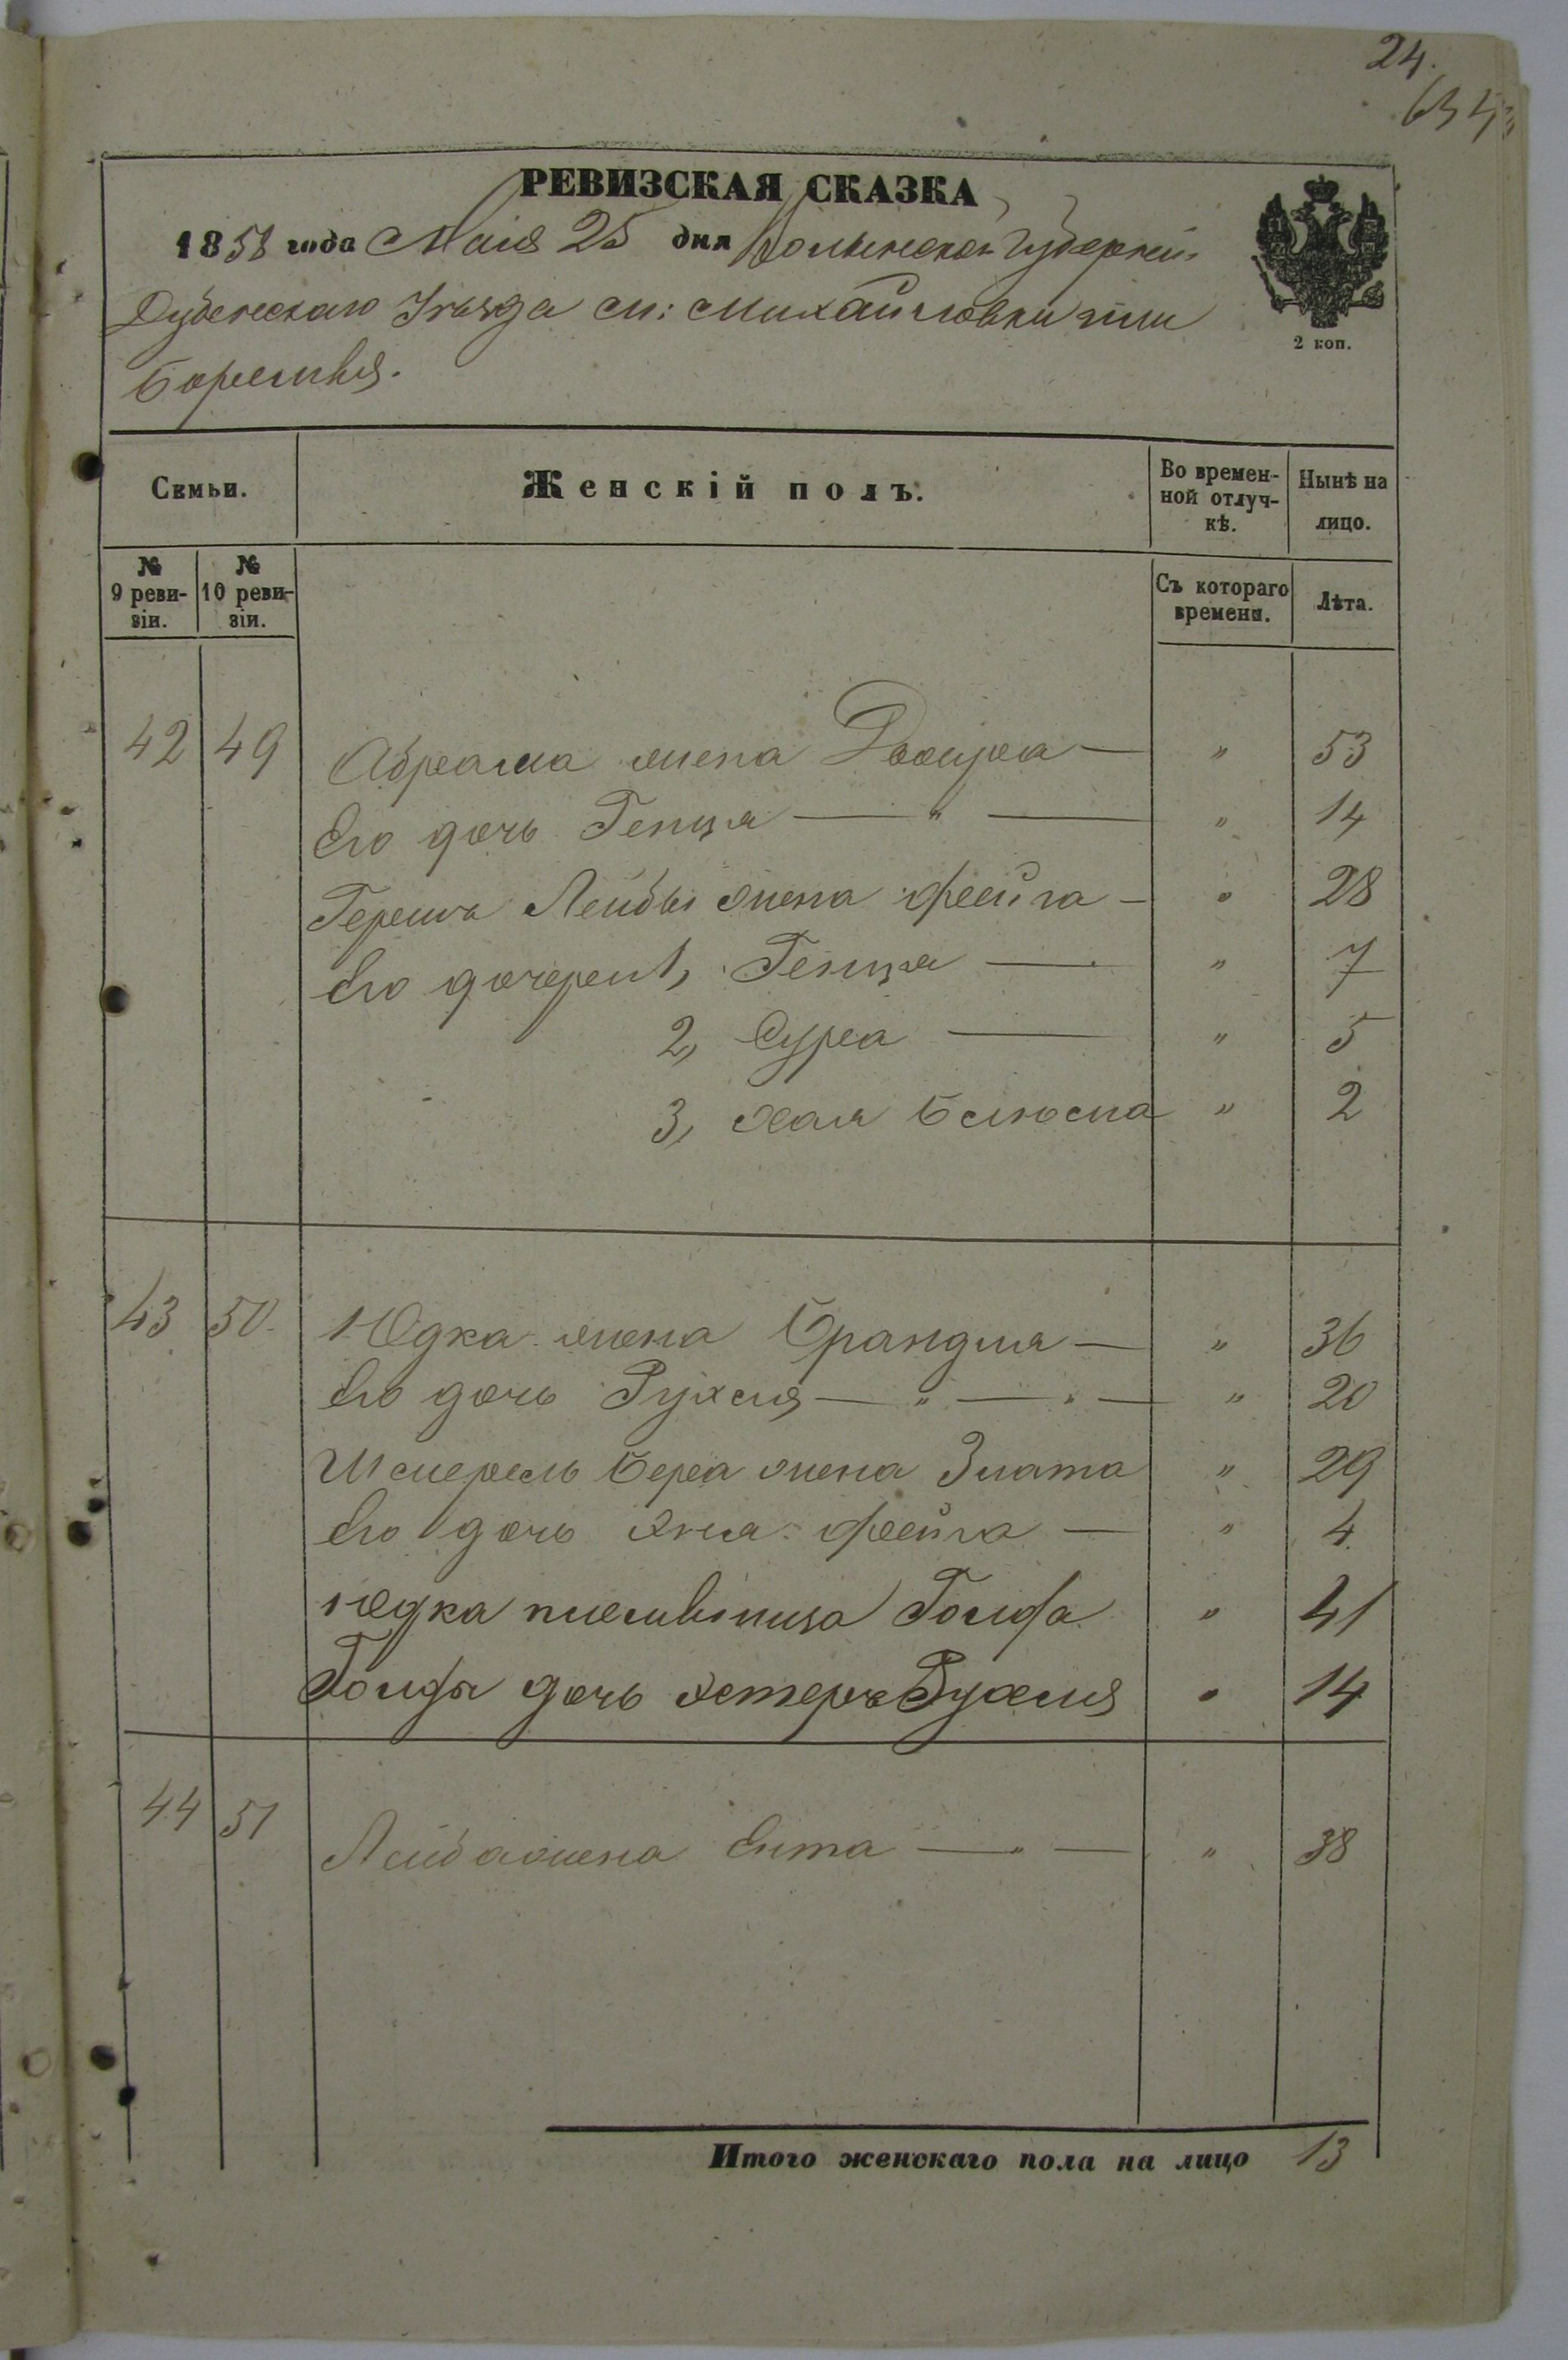 24.
634
РЕВИЗСКАЯ СКАЗКА
1858 года Маія 25 дня Волынской Губерніи
Дубенскаго Уѣзда м: Михайловки или
Боремля.
2 коп.
Семьи. Женскій полъ. Во временной отлучкѣ. Нынѣ на лицо.
№ 9 ревизіи. № 10 ревизіи. Съ котораго времени. Лѣта.
42 49 Абрама жена Двойра — " 53
Его дочь Генця — " — " 14
Гершъ Лейбы жена Фейга — " 28
Его дочери 1, Генця — " 7
2, Сура — " 5
3, Хая Блюма " 2
43 50. Юдка жена Брандля — " 36
Его дочь Рухля — " — " — " 20
Шмерель Бера жена Злата " 29
Его дочь Хая Фейга — " 4
Юдка племѣнница Голда " 41
Голды дочь Эстеръ Рухля " 14
44 51 Лейба жена Ента — " — " 38
Итого женскаго пола на лицо 13